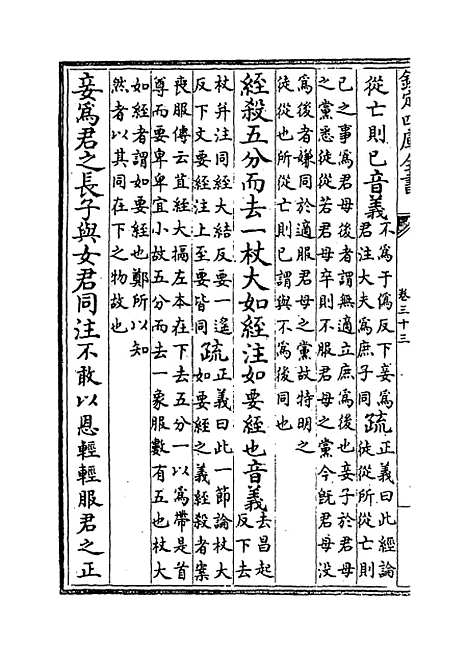 欽定四庫全書
卷三十三
從亡則已音義不為于偽反下妾為
君注大夫為庶子同疏正義曰此經論
徒從所從亡則
已之事為君母後者謂無適立庶為後也妾子於君母
之黨悉徒從若君母卒則不服君母之黨今既君母没
為後者嫌同於適服君母之黨故特明之
徒從也所從亡則已謂與不為後同也
絰殺五分而去一杖大如絰注如要絰也音義去昌起
反下去
杖并注同絰大結反要一遥
反下文要絰注上至要皆同疏正義曰此一節論杖大
如要絰之義絰殺者案
喪服傳云苴絰大搹左本在下去五分一以為帶是首
尊而要卑卑宜小故五分而去一象服數有五也杖大
如絰者謂如要絰也鄭所以知
然者以其同在下之物故也
妾為君之長子與女君同注不敢以恩輕輕服君之正